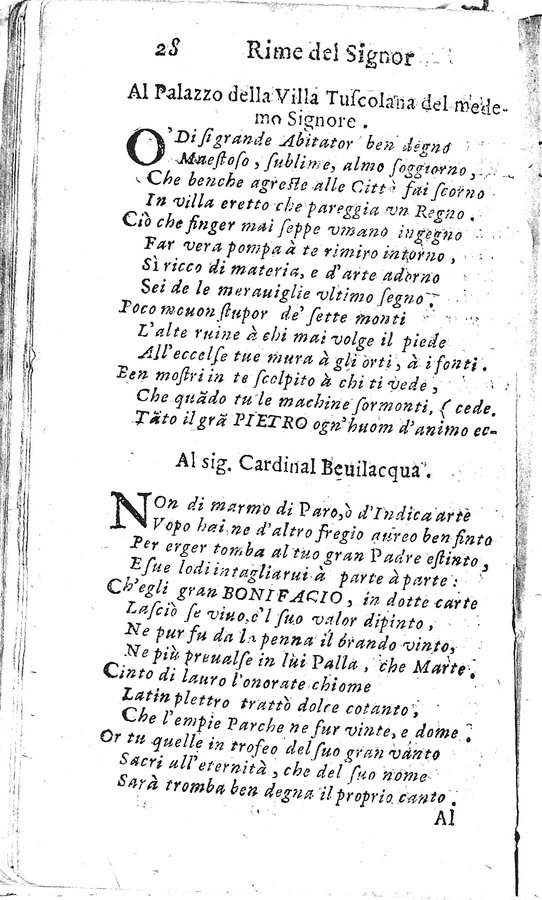 28 Rime del Signor
Al Palazzo della Villa Tuſcolana del mede-
mo Signore.
O' Di ſi grande Abitator ben degno
Maeſtoſo, ſublime, almo ſoggiorno,
Che benche agreſte alle Città fai ſcorno
In villa eretto che pareggia vn Regno.
Ciò che finger mai ſeppe vmano ingegno
Far vera pompa à te rimiro intorno,
Sì ricco di materia, e d'arte adorno
Sei de le merauiglie vltimo ſegno.
Poco ſtupor de' ſette monti
L'alte ruine à chi mai volge il piede
All'eccelſe tue mura à gli orti, à i fonti.
Ben moſtri in te ſcolpito à chi ti vede,
Che quãdo tu le machine ſormonti, { cede.
Tãto il grã PIETRO ogn'huom d'animo ec-
Al sig. Cardinal Beuilacqua.
NOn di marmo di Paro, ò d'Indica arte
Vopo hai, ne d'altro fregio aureo ben finto
Per erger tomba al tuo gran Padre eſtinto,
E ſue lodi intagliarui à parte à parte:
Ch'egli gran BONIFACIO, in dotte carte
Laſciò ſe viuo, e'l ſuo valor dipinto,
Ne pur fu da la penna il brando vinto,
Ne più preualſe in lui Palla, che Marte.
Cinto di lauro l'onorate chiome
Latin plettro trattò dolce cotanto,
Che l'empie Parche ne fur vinte, e dome.
Or tu quelle in trofeo del ſuo gran vanto
Sacri all'eternità, che del ſuo nome
Sarà tromba ben degna il proprio canto.
Al